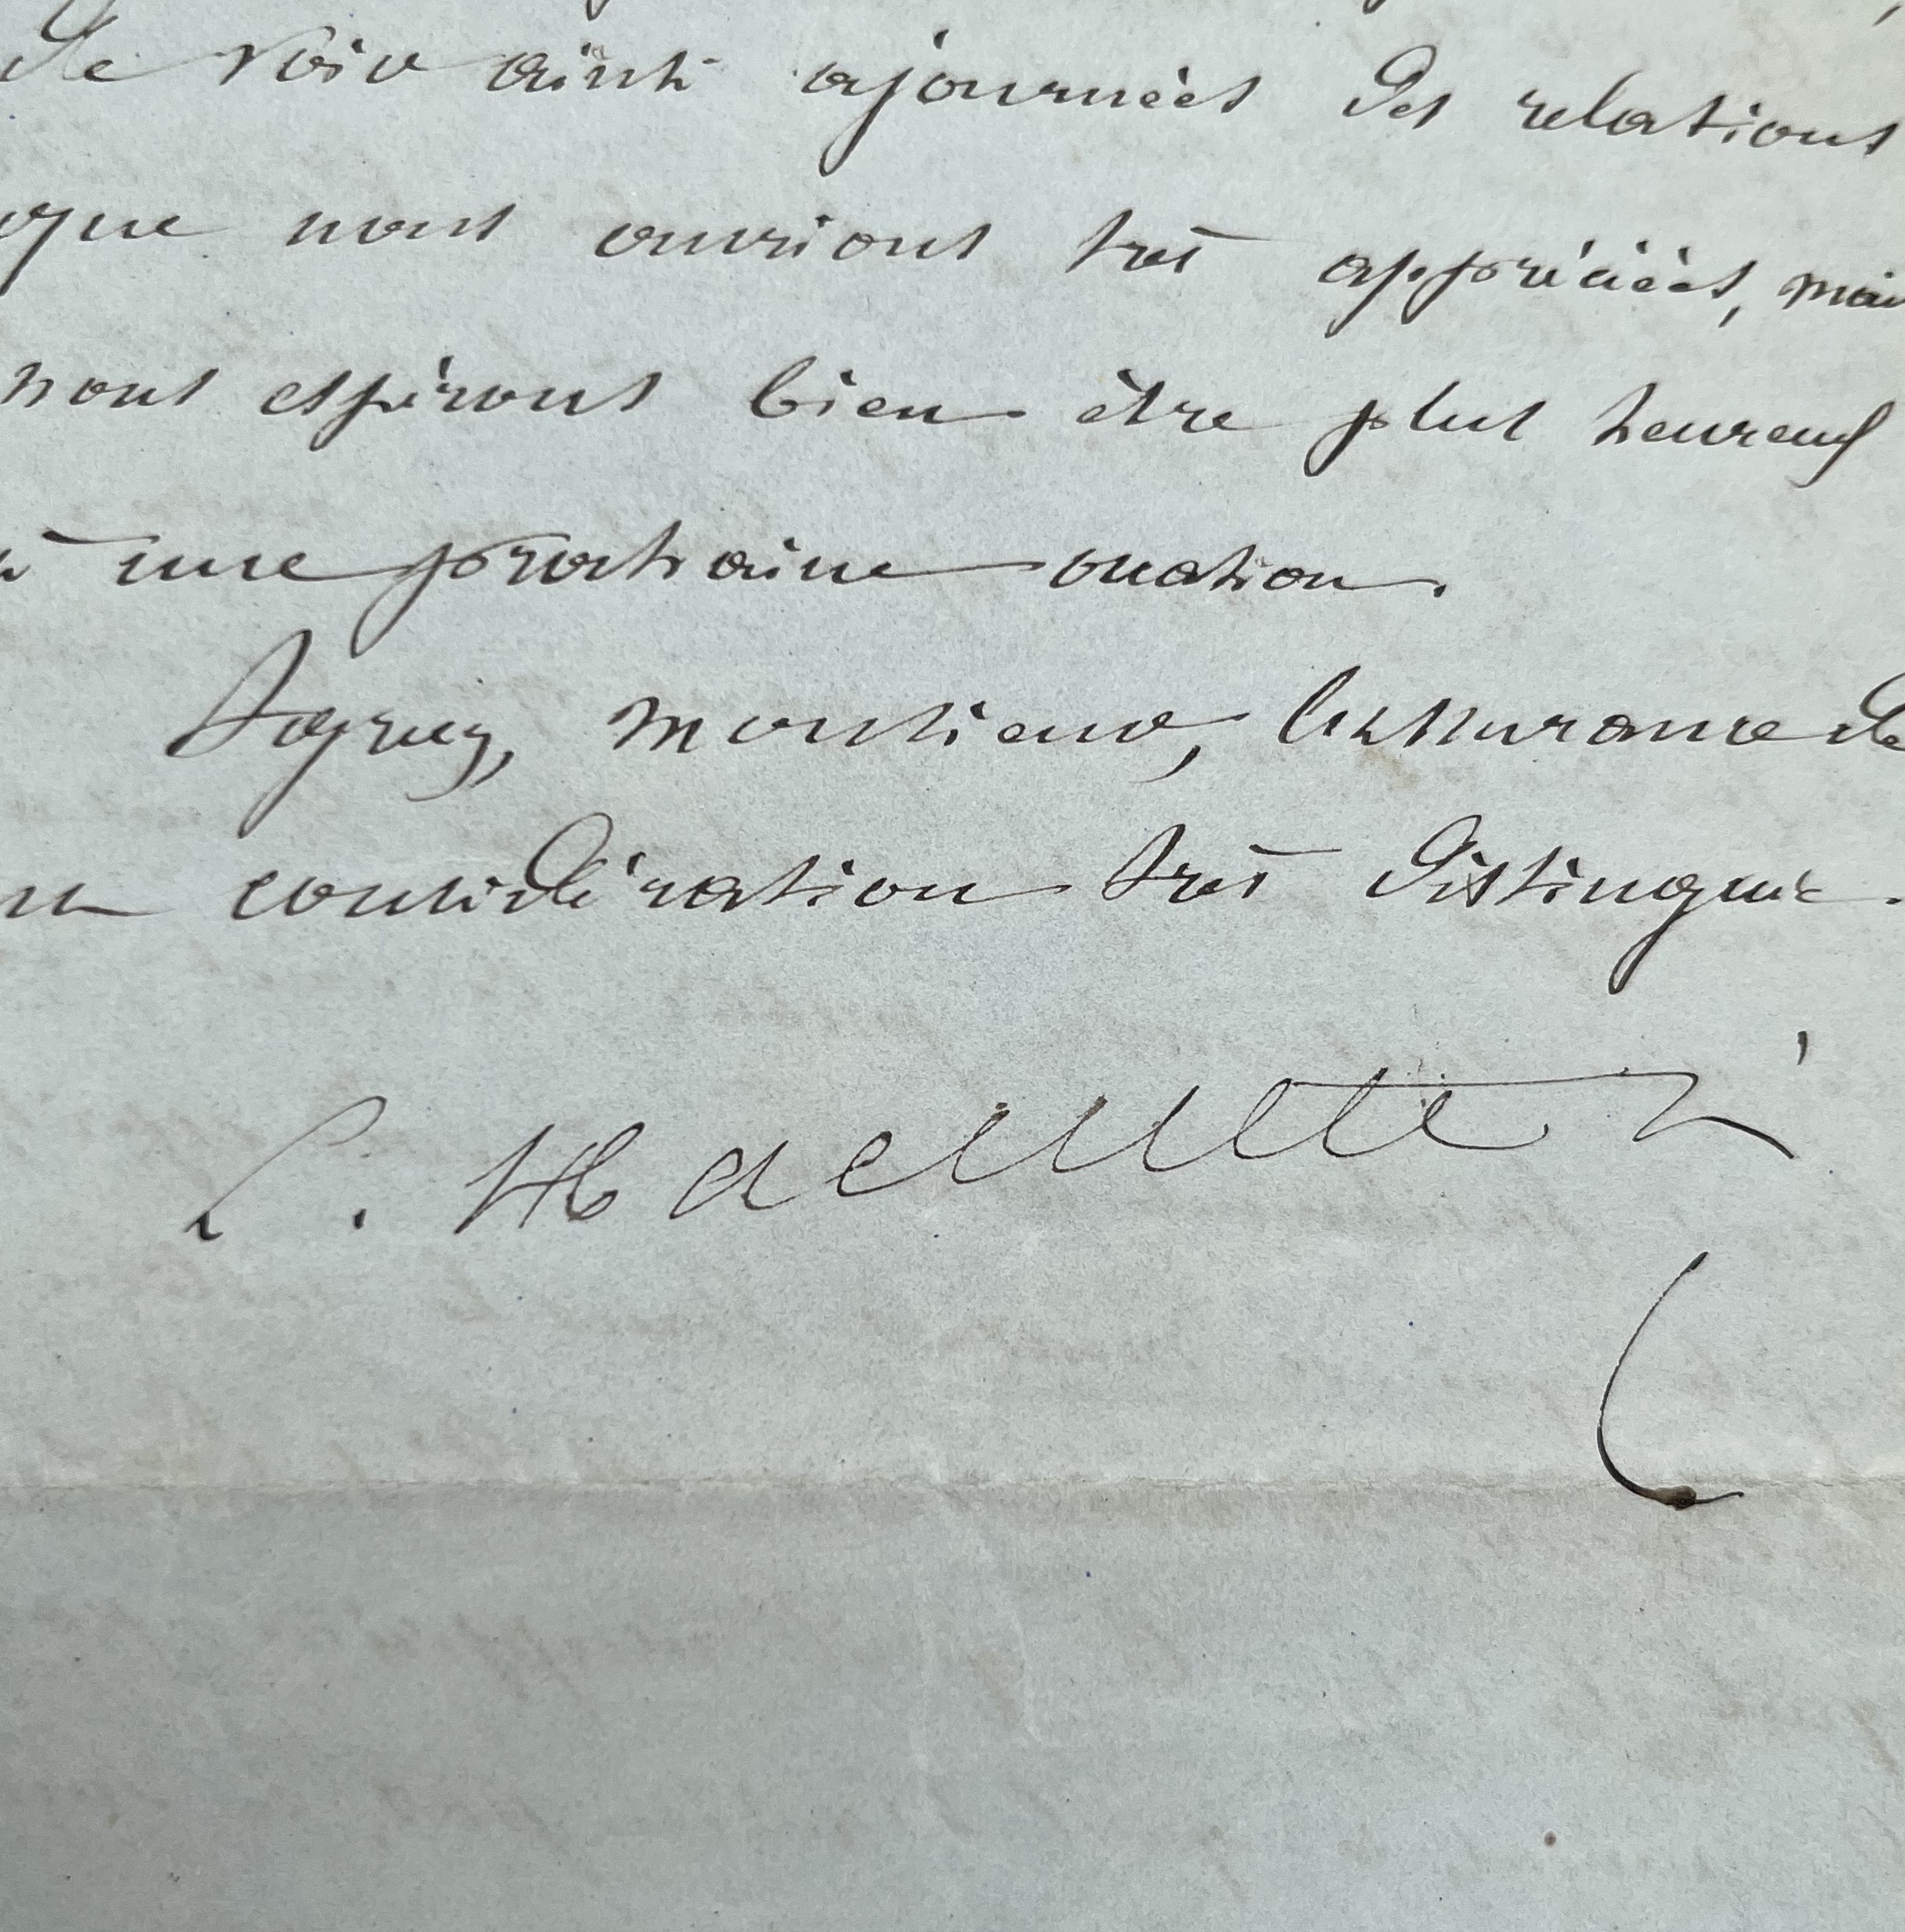 de voir ainsi ajournées des relations
que nous aurions très appréciées, mais
nous espérons bien être plus heureux
à une prochaine occasion.
Agréez, Monsieur, l'assurance de
ma considération très distinguée.